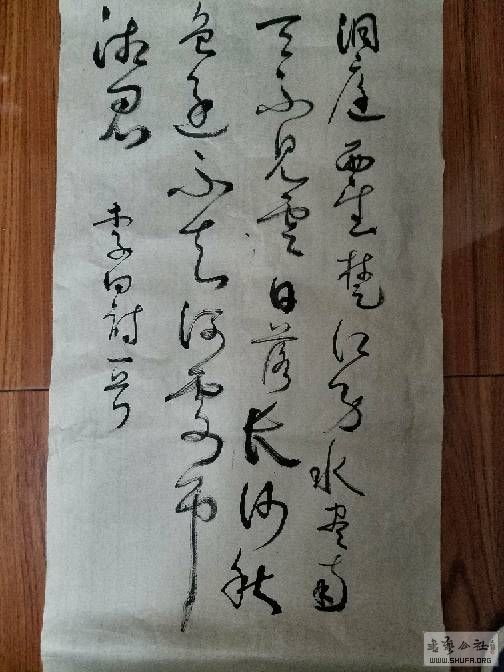 洞庭西望楚江分水尽南
天不見雲日落长沙秋
色遠不知何處吊
湘君
李白詩一首
书艺公社
WWW.SHUFA.ORG